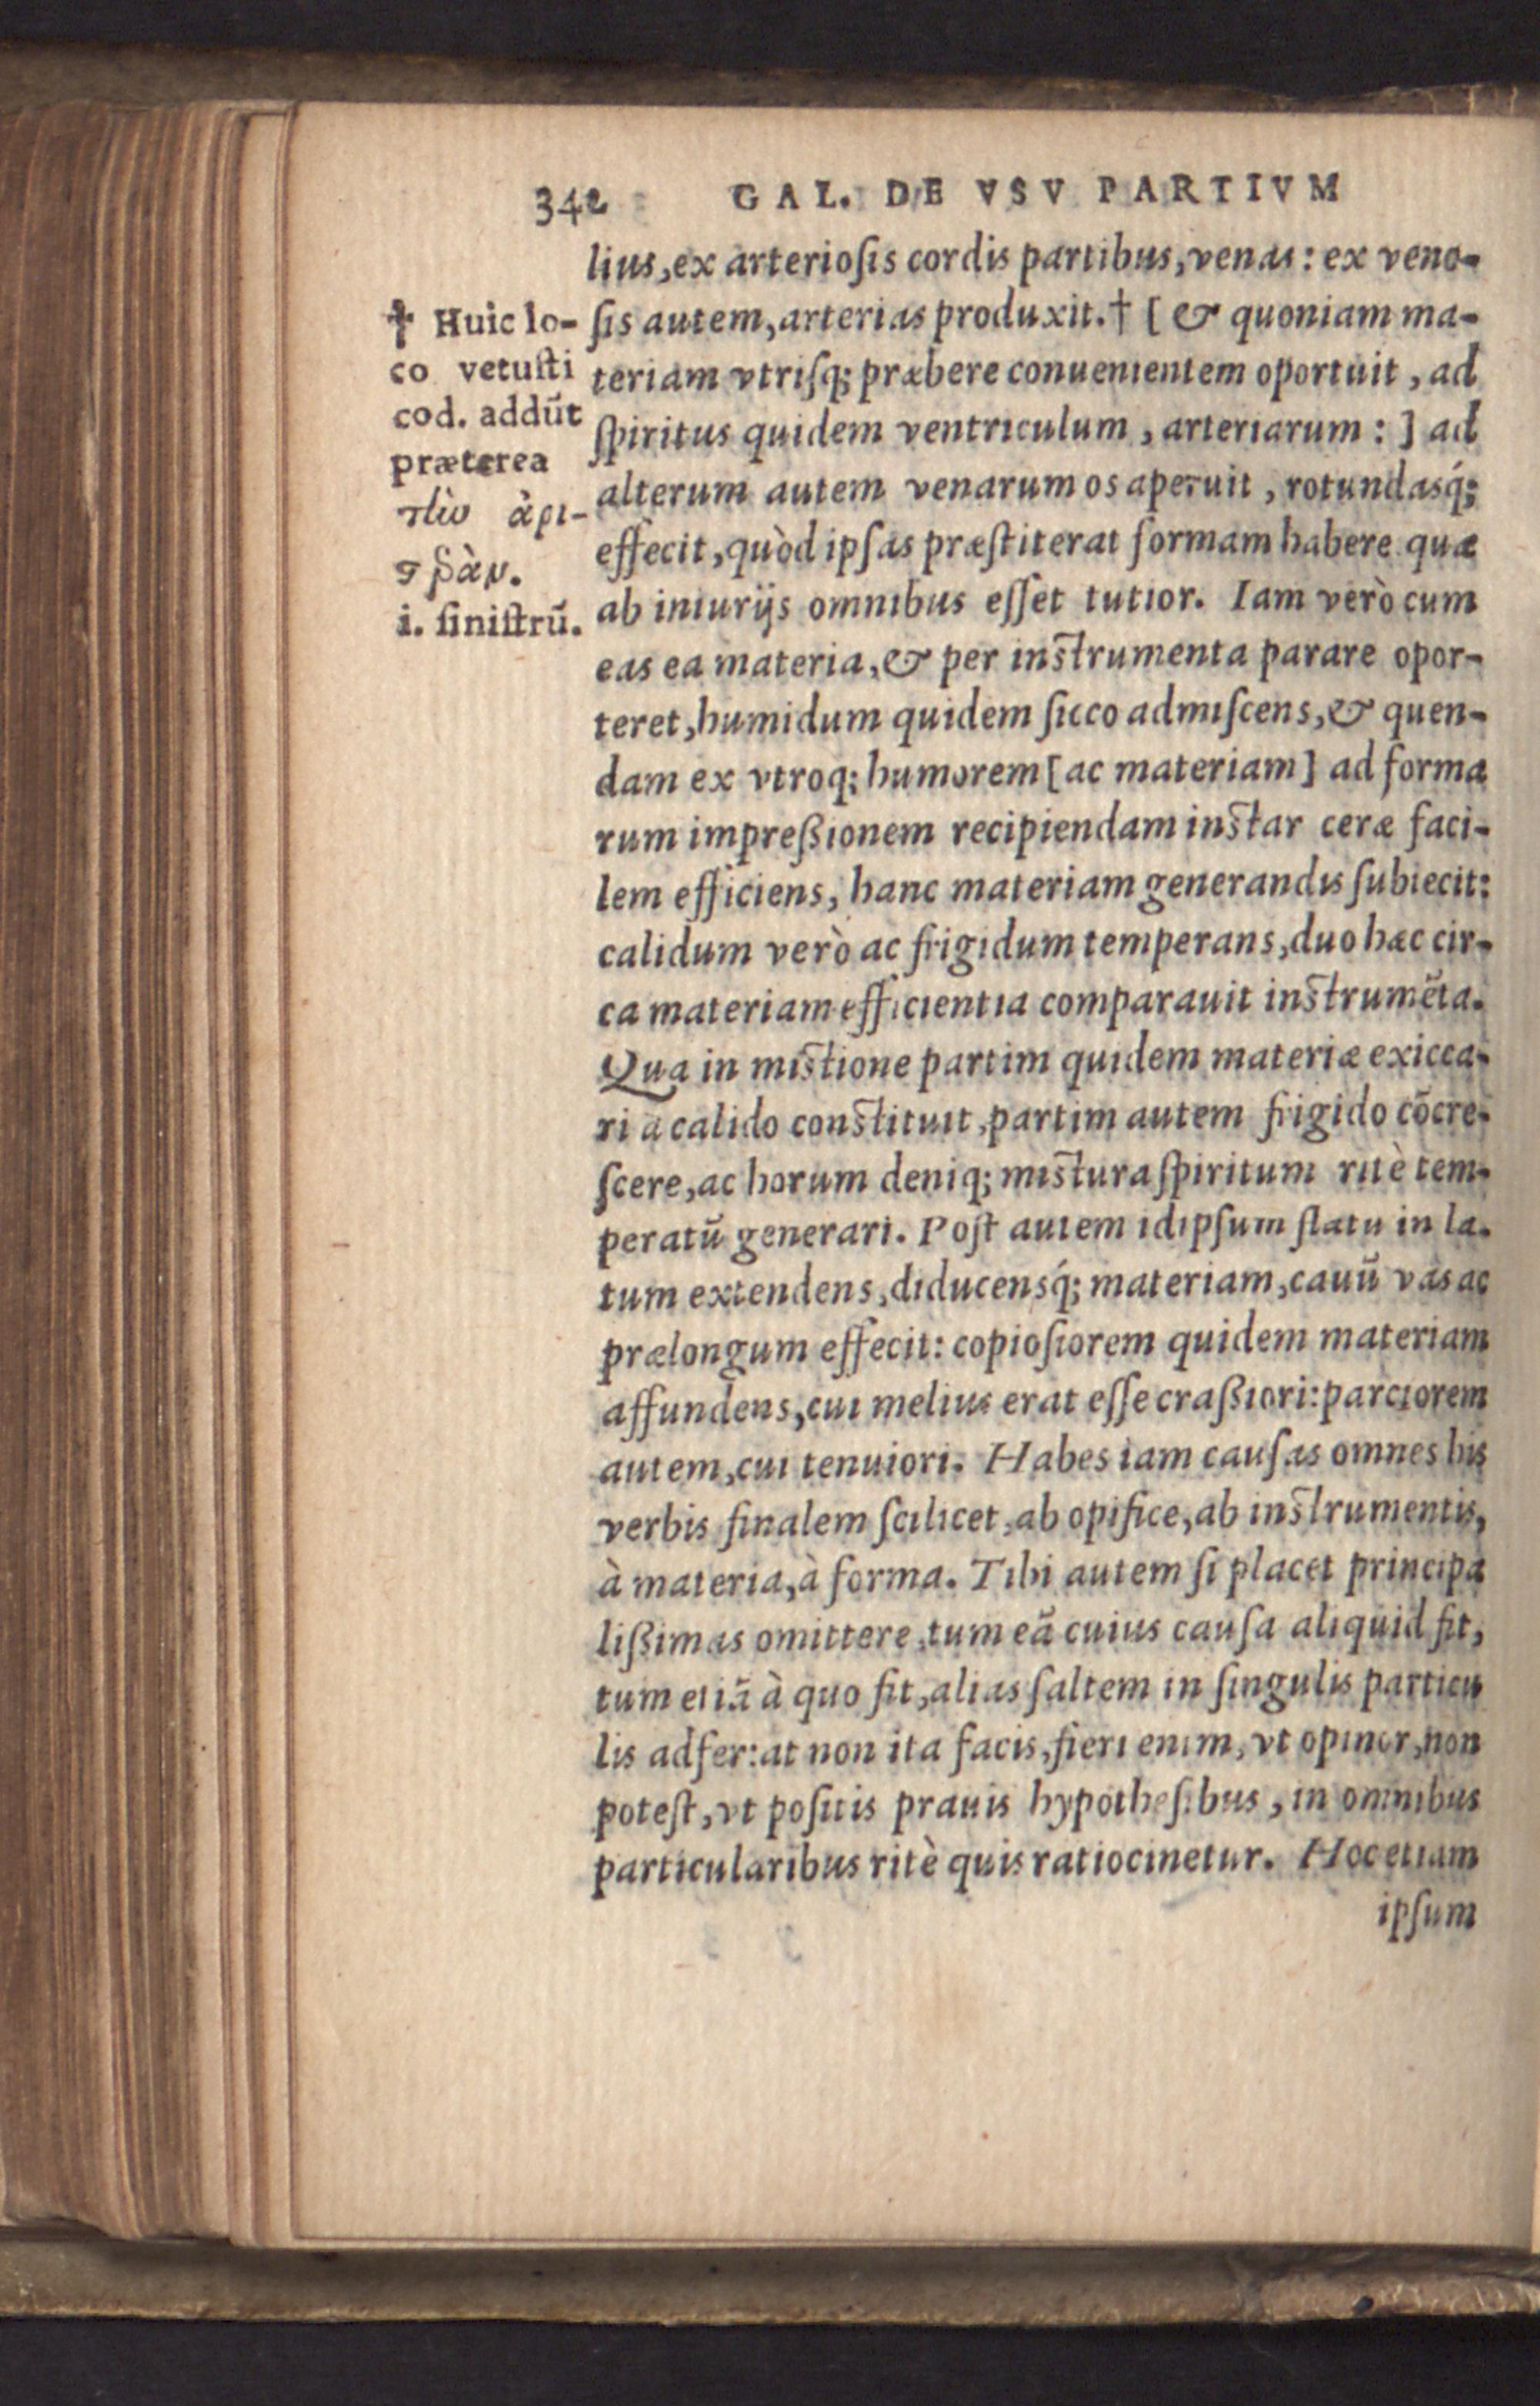 342 GAL. DE VSV PARTIVM
lius, ex arterioſis cordis partibus, venas: ex veno-
ſis autem, arterias produxit. † [ & quoniam ma-
teriam vtriſq; præbere conuenientem oportuit, ad
ſpiritus quidem ventriculum, arteriarum: ] ad
alterum autem venarum os aperuit, rotundasq́;
effecit, quòd ipſas præſtiterat formam habere quæ
ab iniurijs omnibus eſſet tutior. Iam verò cum
eas ea materia, & per inſtrumenta parare opor-
teret, humidum quidem ſicco admiſcens, & quen-
dam ex vtroq; humorem [ac materiam] ad forma
rum impreßionem recipiendam inſtar ceræ faci-
lem efficiens, hanc materiam generandis ſubiecit:
calidum verò ac frigidum temperans, duo hæc cir-
ca materiam efficientia comparauit inſtrumẽta.
Qua in miſtione partim quidem materiæ exicca-
ri a calido conſtituit, partim autem frigido cõcre-
ſcere, ac horum deniq; miſtura ſpiritum ritè tem-
peratũ generari. Poſt autem idipſum flatu in la-
tum extendens, diducensq́; materiam, cauũ vas ac
prælongum effecit: copioſiorem quidem materiam
affundens, cui melius erat eſſe craßiori: parciorem
autem, cui tenuiori. Habes iam cauſas omnes his
verbis finalem ſcilicet, ab opifice, ab inſtrumentis,
à materia, à forma. Tibi autem ſi placet principa
lißimas omittere, tum eã cuius cauſa aliquid fit,
tum etiã à quo fit, alias ſaltem in ſingulis particu
lis adfer: at non ita facis, fieri enim, vt opinor, non
poteſt, vt poſitis prauis hypotheſibus, in omnibus
particularibus ritè quis ratiocinetur. Hoc etiam
ipſum
† Huic lo-
co vetuſti
cod. addũt
præterea
τlὼ ἀρι-
ςερὰν.
i. ſiniſtrũ.